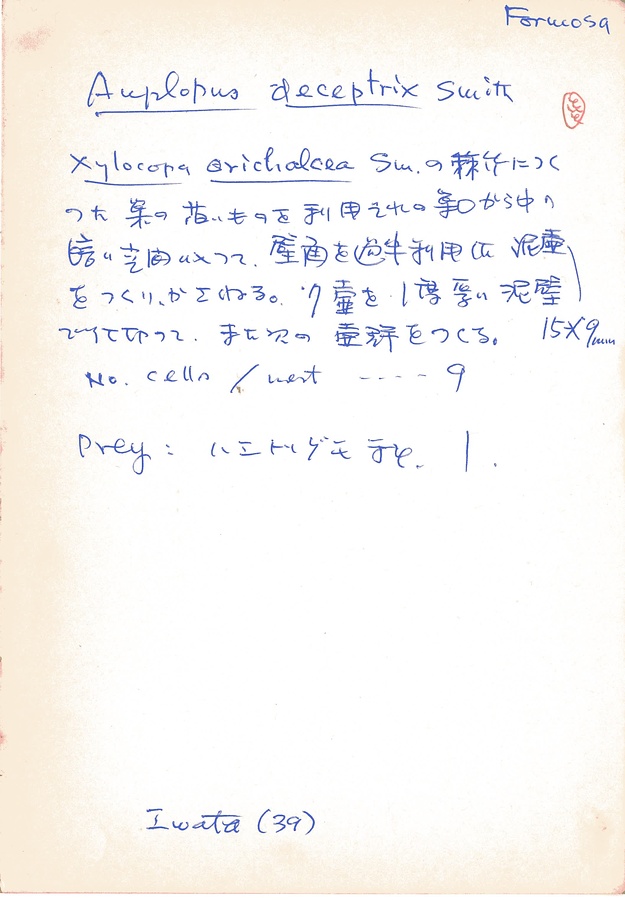 Formosa
Auplopus deceptrix Smith
Xylocopa orichalcea Sm. の 竹につく
つた 巣の 古いものを 利用 巣口から中の
暗い 空間 に入つて、壁面を過半利用した 泥壺
をつくり、かさねる。 7壺を 1度 厚い 泥壁
で仕切つて、また次の 壺群をつくる。 15×9mm
No. cells / nest ---- 9
Prey : ハエトリグモ 1.
Iwata (39)